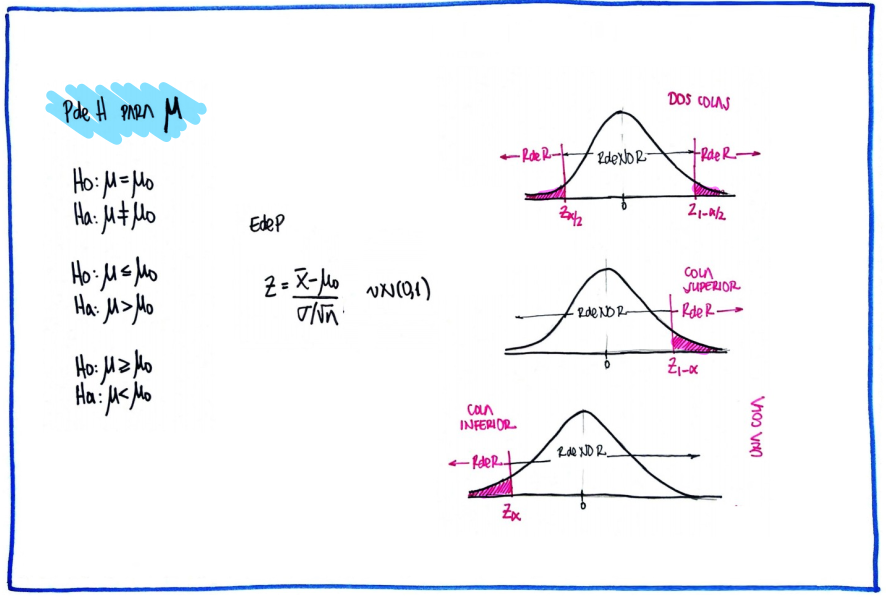 PdeH PARA μ
Ho: μ = μo
Ha: μ ≠ μo
Ho: μ ≤ μo
Ha: μ > μo
Ho: μ ≥ μo
Ha: μ < μo
EdeP
Z = (x̄ - μo) / (σ/√n) ~ N(0,1)
DOS COLAS
RdeR RdeNOR RdeR
Zα/2 0 Z1-α/2
COLA
SUPERIOR
RdeNOR RdeR
0 Z1-α
COLA
INFERIOR
RdeR RdeNOR
Zα 0
UNA COLA